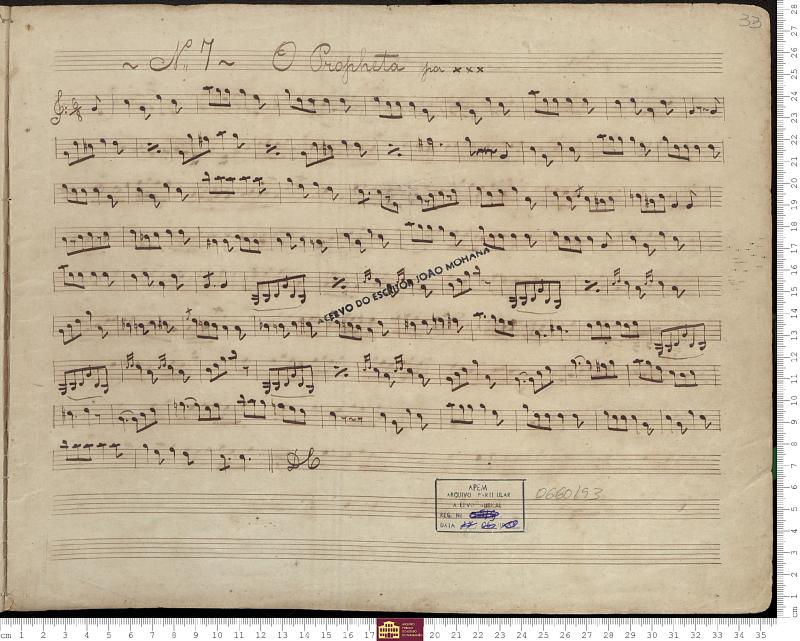 33
~ Nº 7 ~ O Propheta por xxx
ACERVO DO ESCRITOR JOÃO MOHANA
DC
APEM
ARQUIVO PARTICULAR
ACERVO MUSICAL
REG. Nº
DATA
0660/93
cm 1 2 3 4 5 6 7 8 9 10 11 12 13 14 15 16 17 20 21 22 23 24 25 26 27 28 29 30 31 32 33 34 35
cm 1 2 3 4 5 6 7 8 9 10 11 12 13 14 15 16 17 18 19 20 21 22 23 24 25 26 27 28